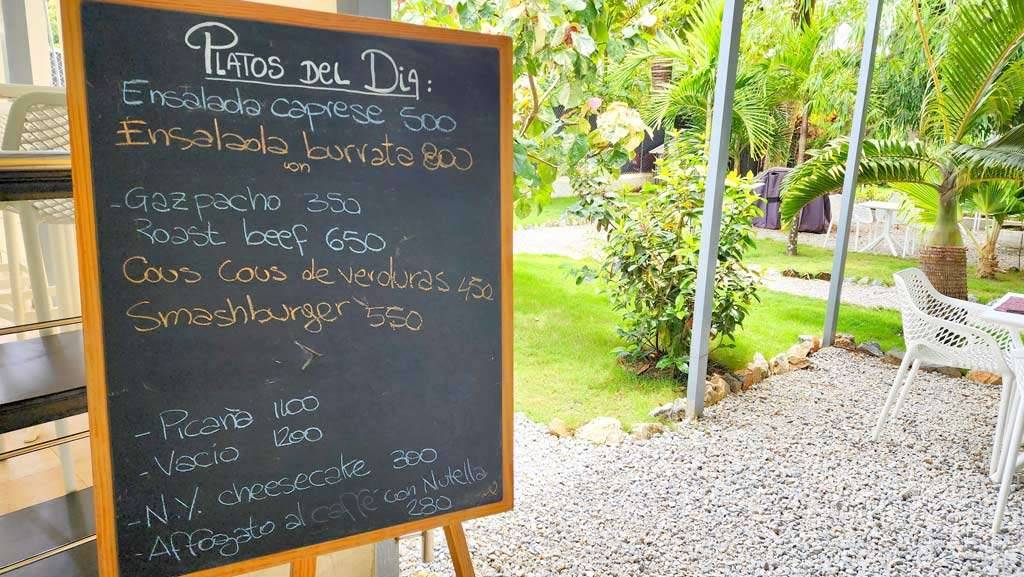 Platos del Dia:
Ensalada caprese 500
Ensalada con burrata 800
- Gazpacho 350
Roast beef 650
Cous Cous de verduras 450
Smashburger 550
- Picaña 1100
- Vacio 1200
- N.Y. cheesecake 300
- Affogato al caffè con Nutella 280